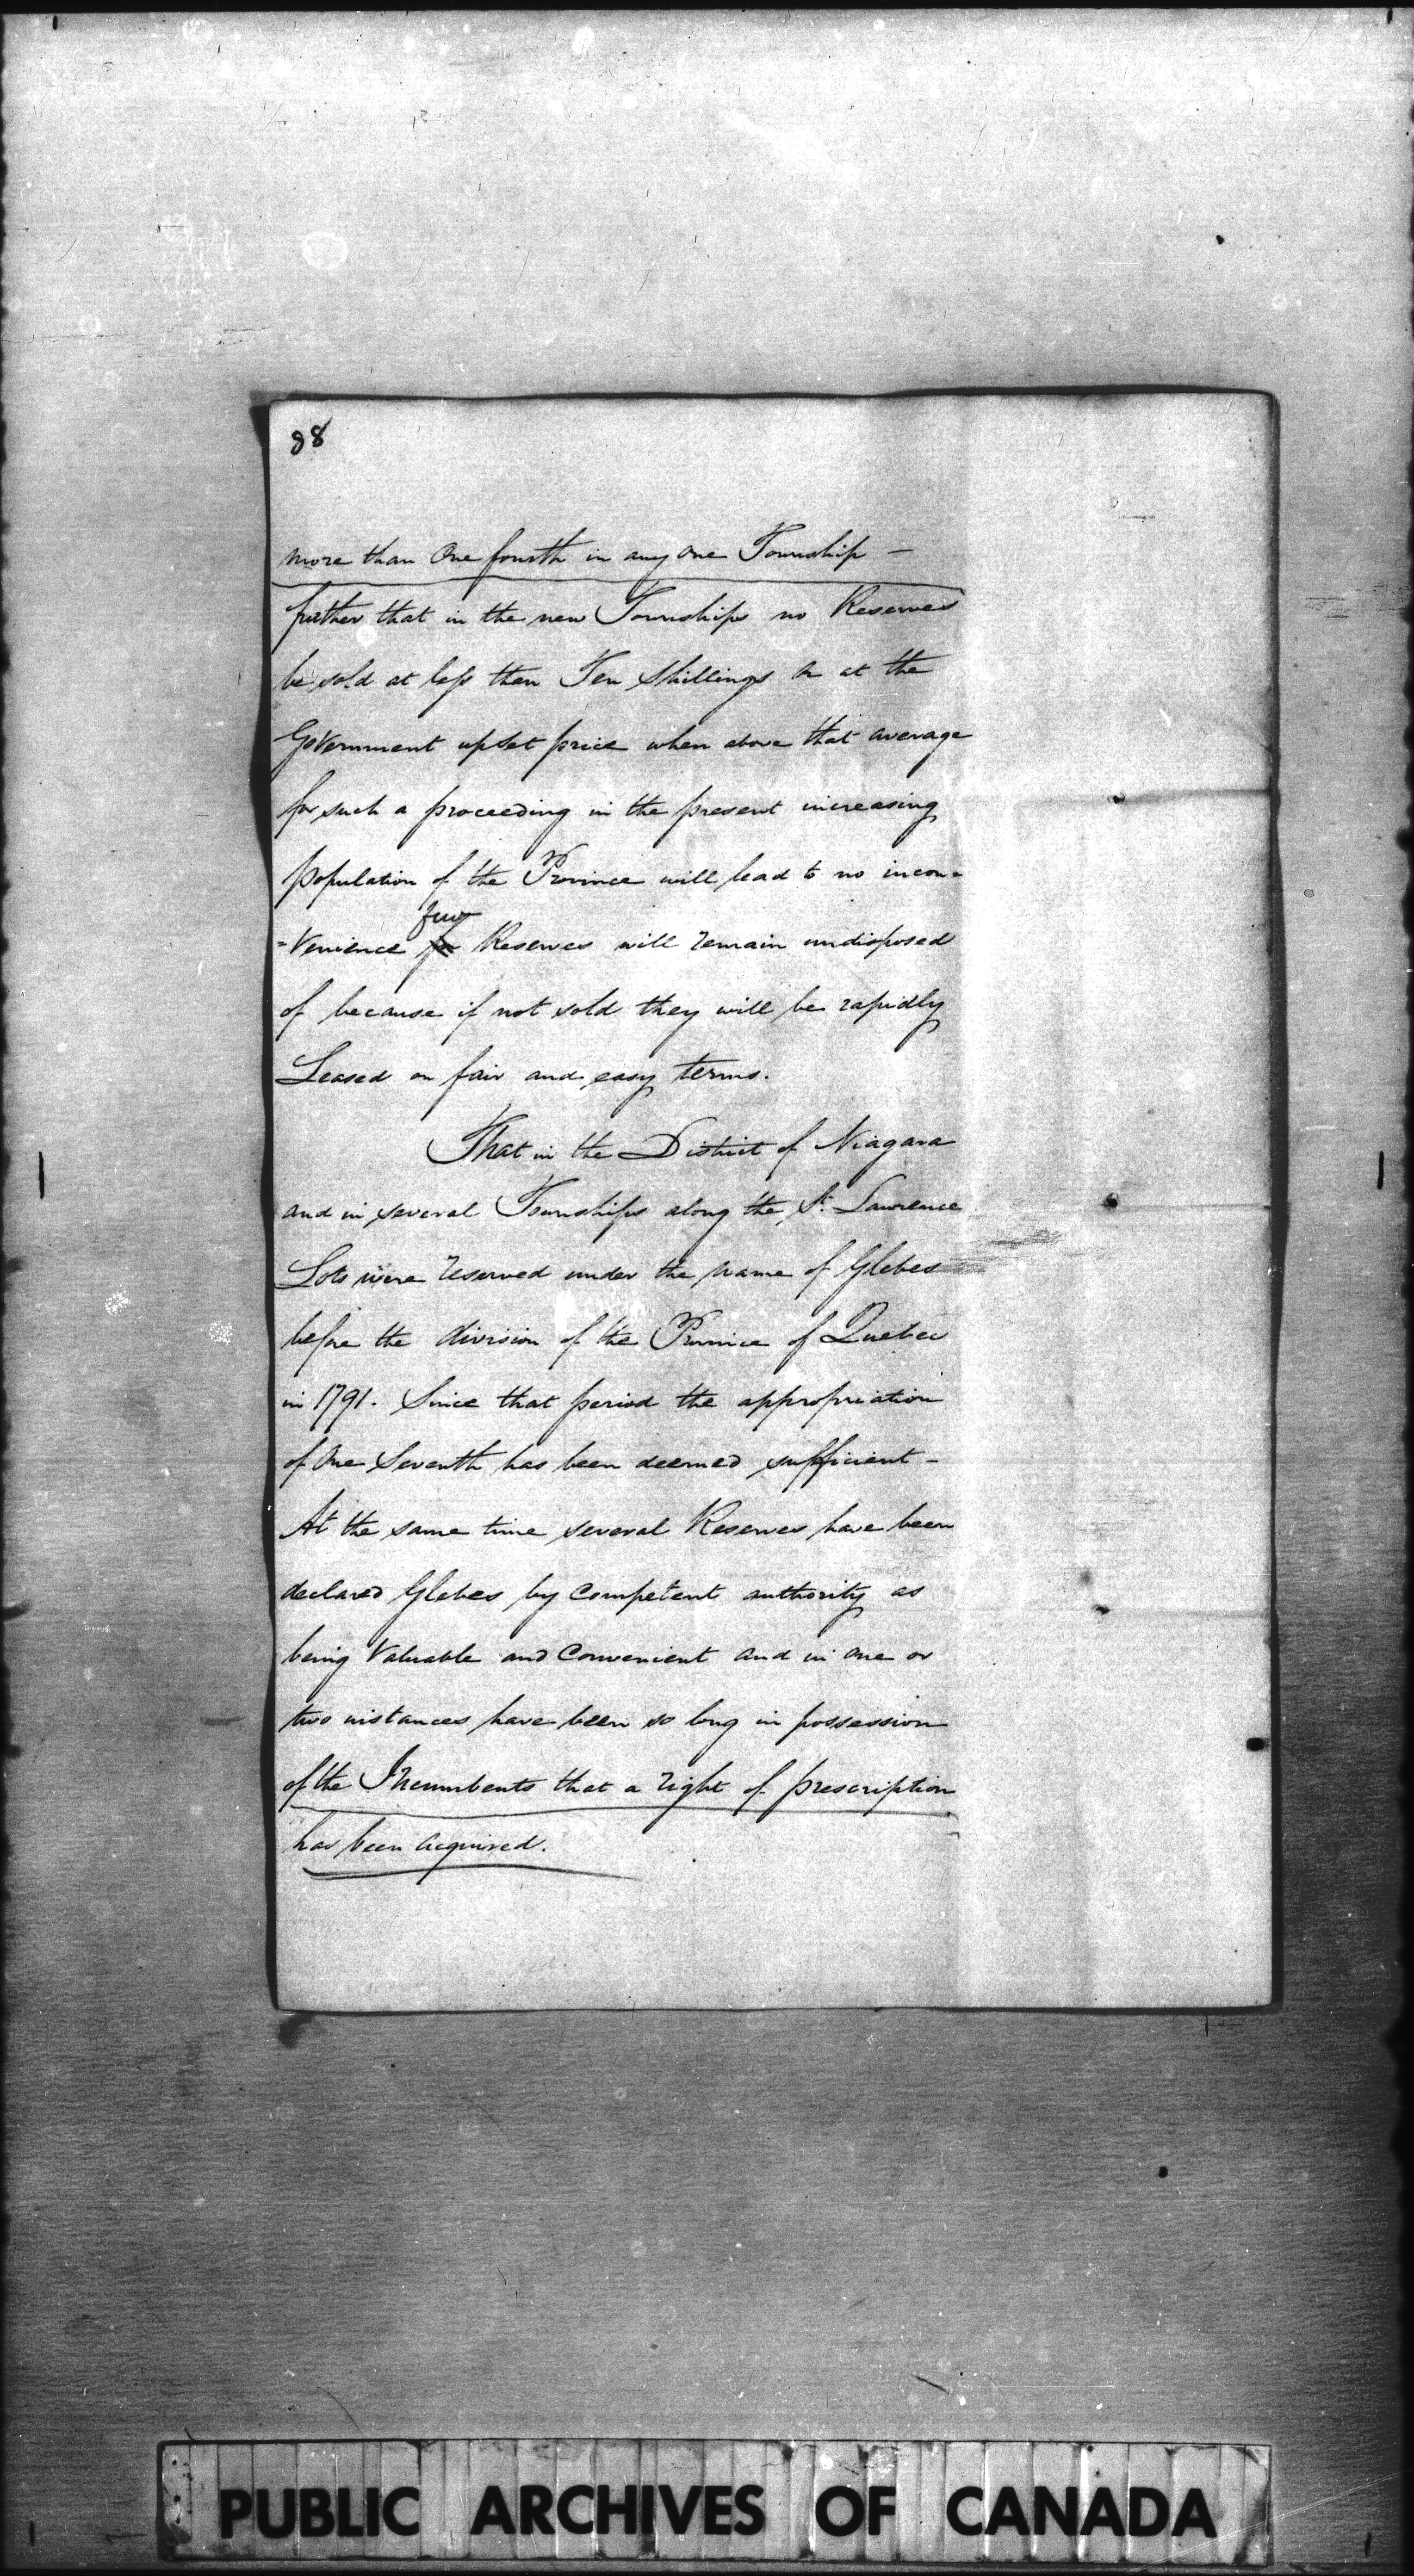 88
more than One fourth in any one Township —
further that in the new Townships no Reserves
be sold at less than Ten Shillings or at the
Government upset price when above that average
for such a proceeding in the present increasing
population of the Province will lead to no incon=
=venience few
for Reserves will remain undisposed
of because if not sold they will be rapidly
Leased on fair and easy terms.
That in the District of Niagara
and in several Townships along the St. Lawrence
Lots were reserved under the name of Glebes
before the division of the Province of Quebec
in 1791. Since that period the appropriation
of One Seventh has been deemed sufficient –
At the same time several Reserves have been
declared Glebes by Competent authority as
being Valuable and Convenient and in one or
two instances have been so long in possession
of the Incumbents that a right of prescription
has been acquired.
PUBLIC ARCHIVES OF CANADA